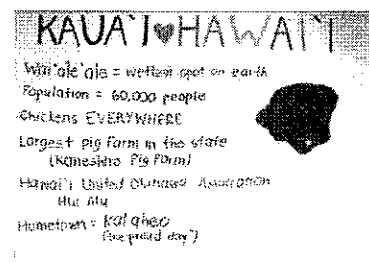 KAUA`I♥HAWAI`I
Wai`ale`ale = wettest spot on earth
Population = 60,000 people
Chickens EVERYWHERE
Largest pig farm in the state
(Kaneshiro Pig Farm)
Hawai`i United Okinawa Association
Hui Alu
Hometown = Kalaheo
("the proud day")